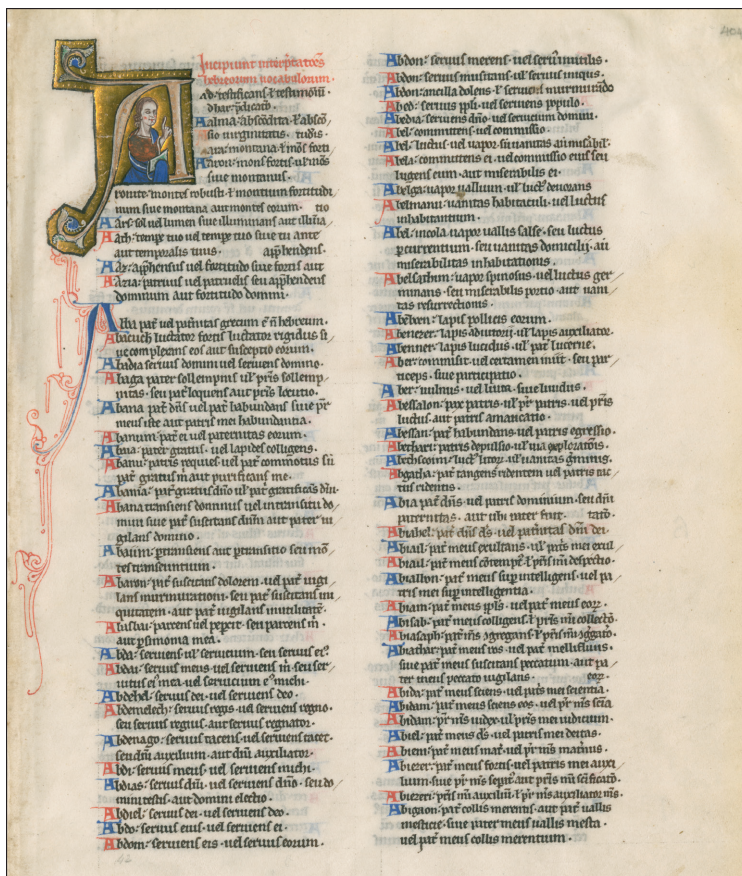 Incipiunt interpretatões
hebreorum uocabulorum.
ad: testificans: ł testimoniũ.
Aalma: abscondita ł absco
sio uirginitatis
Aaron: mons fortis ul' mõs
siue montanus.
mum siue montana aut montes eorum.
Aars: sol uel lumen siue illuminans aut illũia
aut temporalis tuus. apphendens.
Az: apphensus uel fortitudo siue fortis aut
Azia: patruus uel patruelis seu apphendens
dominum aut fortitudo domini.
Abba pat' uel patnitas grecum ē ñ hebreum.
Abacuch luctator fortis luctator rigidus si
ue complexans eos aut susceptio eorum.
Abadia seruus domini uel seruiens domino.
Abaga pater sollempnis ul' pris sollemp
nitas. seu pat' loquens aut pris locutio.
Abana pat' dñs uel pat' habundans siue pr̃
meus iste aut patris mei habundantia.
Abanum: pat' ei uel paternitas eorum.
Abaia: pater gratus. uel lapides colligens.
Abanu: patris requies uel pat' commotus siu
pat' gratus m̃ aut purificans me.
Abama: pat' gratus dño ul' pat' gratificãs dñi.
Abana transiens dominus uel intransitu do
mini siue pat' suscitans dñm aut pater ui
gilans domino.
Abaum: ptransiens aut ptransitio seu mõ
tes transeuntium.
Abaron: pat' suscitans dolorem. uel patr̃ uigi
lans murmurationi. seu pat' suscitans ini
quitatem. aut pat' uigilans inutilitatē.
Abusbai: parcens uel pepercit. seu parcens m̃.
aut psimonia mea.
Abda: seruiens. ul' seruicium. seu seruus ei'.
Abdai: seruus meus. uel seruiens m̃. seu ser
uitus ei' mea. uel seruicium ei' michi.
Abdehel: seruus dei. uel seruiens deo.
Abdemelech: seruus regis. uel seruiens regno.
seu seruus regius. aut seruus regnator.
Abdenago: seruus tacens. uel seruiens tacet.
seu dñi auxilium. aut dñi auxiliator.
Abdi: seruus meus. uel seruiens michi.
Abdias: seruus dñi. uel seruiens dño. seu do
mini testis. aut domini electio.
Abdiel: seruus dei. uel seruiens deo.
Abdo: seruus eius. uel seruiens ei.
Abdom: seruiens eis. uel seruus eorum.
Abdon: seruus merens. uel seruũ inutilis.
Abdon: seruus musitans. ul' seruus iniqus.
Abdon: ancilla dolens. ł seruus murmurãdo
Abed: seruus ppli. uel seruiens populo.
Abedia: seruiens dño. uel seruicium domini.
Abel: committens. uel commissio.
Abel: luctus. uel uapor. siue uanitas aut misabil'.
Abela: committens ei. uel commissio eius seu
lugens eum. aut miserabilis ei.
Abelga: uapor uallium. ul' luct' deuorans
Abelmaum: uanitas habitaculi. uel luctus
inhabitantium.
Abel: incola uapor uallis salse. seu luctus
pcurrentium. seu uanitas domicilij. aũ
miserabilitas inhabitationis.
Abelsathim: uapor spinosus. uel luctus ger
minans. seu miserabilis portio. aut uani
tas resurrectionis.
Abēben: lapis pollicis eorum.
Abenezer: lapis adiutorii. ul' lapis auxiliator.
Abenner: lapis lucidus. ul' pat' lucerne.
Aber: commisit. uel certamen iniit. seu par
ticeps. siue participatio.
Aber: uulnus. uel liuea. siue liuidus.
Abessalon: pax patris. ul' pr̃ patris. uel pris
luctus. aut patris amaricatio.
Abessan: pat' habundans. uel patris egressio.
Abethari: patris depulsio. ul' uia exploratoris.
Abgatha: pat' tangens ridentem. uel patris tac
tus ridentis.
Abia pat' dñs. uel patris dominium. seu dñi
paternitas. aut ubi pater fuit.
Abiabel: pat' dñs dē. uel patnitas dñi dei.
Abiail: pat' meus exultans. ul' pris mei exul
Abiail: pat' meus cõtempt'. ł pris mi despectio.
Abialbon: pat' meus sup intelligens. uel pa
tris mei sup intelligentia.
Abiam: pat' meus ipse. uel pat' meus eorum.
Abisab: pat' meus colligens. ł pris mi collectio.
Abiasaph: pat' ms congregans. ł pris mi congregatio.
Abiathar: pat' meus ros. uel pat' mellifluus.
siue pat' meus suscitans peccatum. aut pa
ter meus peccato uigilans.
Abida: pat' meus sciens. uel pris mei scientia.
Abidam: pat' meus sciens eos. uel pr̃ ms scia
Abidam: pr̃ ms iudex. ul' pris mei iudicium.
Abiel: pat' meus ds. uel patris mei deitas.
Abiem: pat' meus mat'. uel pr̃ ms matnus.
Abiezer: pat' meus fortis. uel patris mei auxi
lium.
Abiezeri: pris mi auxiliũ. ł pr̃ ms auxiliator ms.
Abigaon: pat' collis merentis. aut pat' uallis
mesticie. siue pater meus uallis mesta.
uel pat' meus collis merentium.